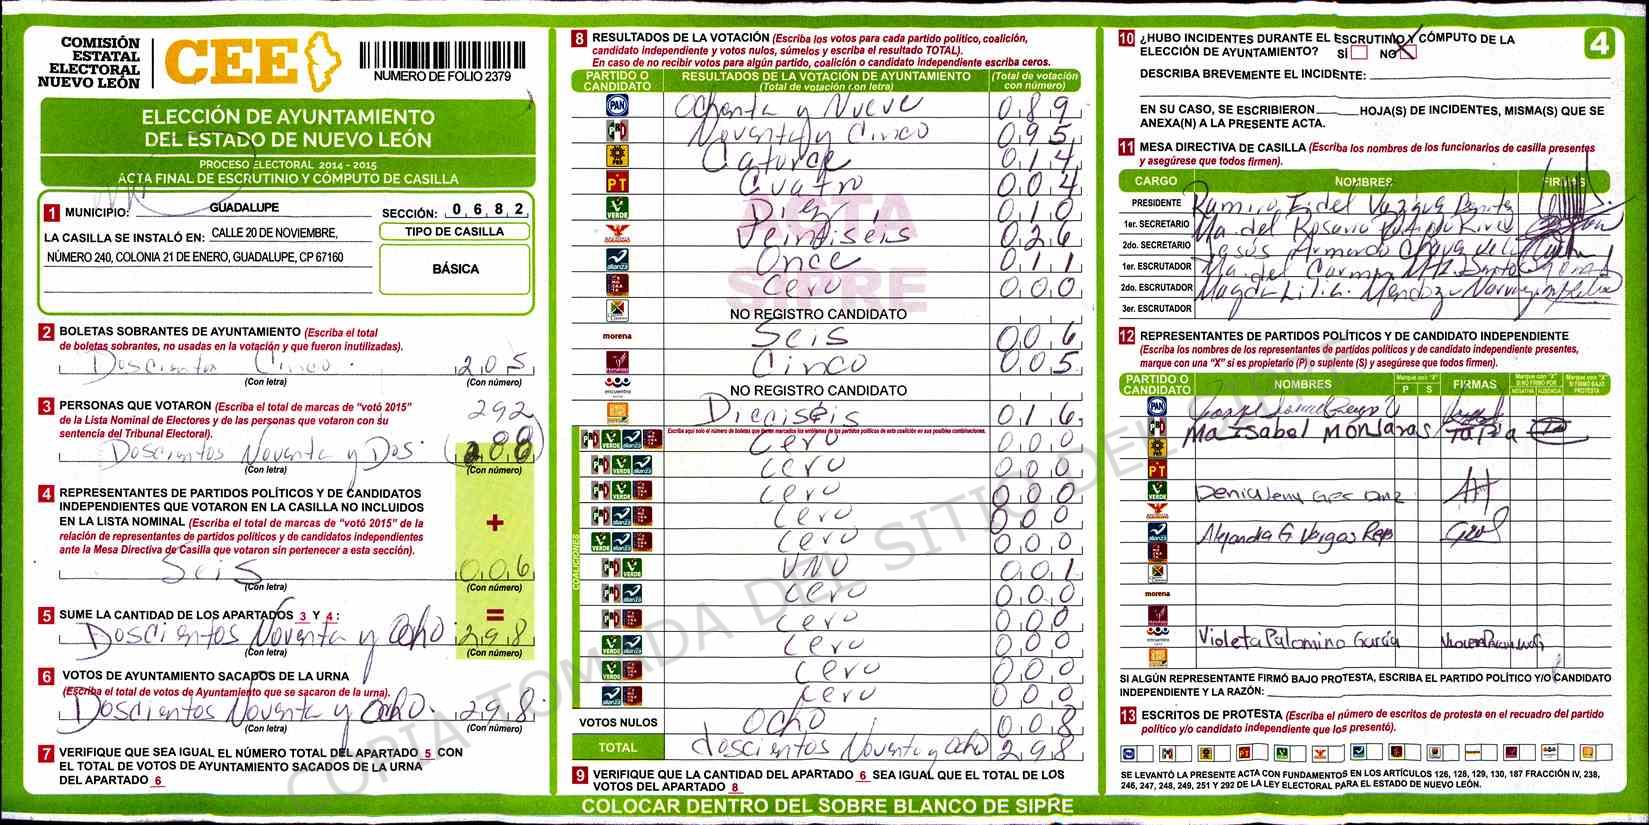 COMISIÓN
ESTATAL
ELECTORAL
NUEVO LEÓN
CEE
NUMERO DE FOLIO 2379
ELECCIÓN DE AYUNTAMIENTO
DEL ESTADO DE NUEVO LEÓN
PROCESO ELECTORAL 2014 - 2015
ACTA FINAL DE ESCRUTINIO Y CÓMPUTO DE CASILLA
1 MUNICIPIO: GUADALUPE
SECCIÓN: 0 6 8 2
LA CASILLA SE INSTALÓ EN: CALLE 20 DE NOVIEMBRE,
NÚMERO 240, COLONIA 21 DE ENERO, GUADALUPE, CP 67160
TIPO DE CASILLA
BÁSICA
2 BOLETAS SOBRANTES DE AYUNTAMIENTO (Escriba el total
de boletas sobrantes, no usadas en la votación y que fueron inutilizadas).
Doscientos Cinco. 205
(Con letra) (Con número)
3 PERSONAS QUE VOTARON (Escriba el total de marcas de "votó 2015"
de la Lista Nominal de Electores y de las personas que votaron con su
sentencia del Tribunal Electoral).
292
Doscientos Noventa y Dos. (288)
(Con letra) (Con número)
4 REPRESENTANTES DE PARTIDOS POLÍTICOS Y DE CANDIDATOS
INDEPENDIENTES QUE VOTARON EN LA CASILLA NO INCLUIDOS
EN LA LISTA NOMINAL (Escriba el total de marcas de "votó 2015" de la
relación de representantes de partidos políticos y de candidatos independientes
ante la Mesa Directiva de Casilla que votaron sin pertenecer a esta sección).
+
Seis 006
(Con letra) (Con número)
5 SUME LA CANTIDAD DE LOS APARTADOS 3 Y 4 :
=
Doscientos Noventa y Ocho. 298
(Con letra) (Con número)
6 VOTOS DE AYUNTAMIENTO SACADOS DE LA URNA
(Escriba el total de votos de Ayuntamiento que se sacaron de la urna).
Doscientos Noventa y Ocho. 298.
(Con letra) (Con número)
7 VERIFIQUE QUE SEA IGUAL EL NÚMERO TOTAL DEL APARTADO 5 CON
EL TOTAL DE VOTOS DE AYUNTAMIENTO SACADOS DE LA URNA
DEL APARTADO 6
8 RESULTADOS DE LA VOTACIÓN (Escriba los votos para cada partido político, coalición,
candidato independiente y votos nulos, súmelos y escriba el resultado TOTAL).
En caso de no recibir votos para algún partido, coalición o candidato independiente escriba ceros.
PARTIDO O CANDIDATO
RESULTADOS DE LA VOTACIÓN DE AYUNTAMIENTO
(Total de votación con letra)
(Total de votación con número)
PAN Ochenta y Nueve 089
PRI Noventa y Cinco 095
PRD Catorce 014
PT Cuatro 004
VERDE Diez 010
Veintiseis 026
alianza Once 011
Cero 000
NO REGISTRO CANDIDATO
morena Seis 006
Cinco 005
NO REGISTRO CANDIDATO
Dieciseis 016
Escriba aquí solo el número de boletas que tienen marcados los emblemas de los partidos políticos de esta coalición en sus posibles combinaciones.
COALICIONES
Cero 000
cero 000
cero 000
cero 000
cero 000
UNO 001
cero 000
cero 000
cero 000
cero 000
cero 000
VOTOS NULOS Ocho 008
TOTAL doscientos Noventa y ocho 298
9 VERIFIQUE QUE LA CANTIDAD DEL APARTADO 6 SEA IGUAL QUE EL TOTAL DE LOS
VOTOS DEL APARTADO 8
ACTA
SIPRE
COPIA TOMADA DEL SITIO DEL SIPRE
COLOCAR DENTRO DEL SOBRE BLANCO DE SIPRE
10 ¿HUBO INCIDENTES DURANTE EL ESCRUTINIO Y CÓMPUTO DE LA
ELECCIÓN DE AYUNTAMIENTO? SÍ NO X
4
DESCRIBA BREVEMENTE EL INCIDENTE:
EN SU CASO, SE ESCRIBIERON HOJA(S) DE INCIDENTES, MISMA(S) QUE SE
ANEXA(N) A LA PRESENTE ACTA.
11 MESA DIRECTIVA DE CASILLA (Escriba los nombres de los funcionarios de casilla presentes
y asegúrese que todos firmen).
CARGO NOMBRES FIRMAS
PRESIDENTE Ramiro Fidel Vazquez
1er. SECRETARIO Ma. del Rosario
2do. SECRETARIO Jesús Armando
1er. ESCRUTADOR Ma. del Carmen
2do. ESCRUTADOR Magda Lilia Mendoza
3er. ESCRUTADOR
12 REPRESENTANTES DE PARTIDOS POLÍTICOS Y DE CANDIDATO INDEPENDIENTE
(Escriba los nombres de los representantes de partidos políticos y de candidato independiente presentes,
marque con una "X" si es propietario (P) o suplente (S) y asegúrese que todos firmen).
PARTIDO O CANDIDATO NOMBRES P S FIRMAS
PAN
PRI Ma Isabel Monjaras Tapia
PRD
PT
VERDE
alianza Alejandra G Vargas
morena
Violeta Palomino García
SI ALGÚN REPRESENTANTE FIRMÓ BAJO PROTESTA, ESCRIBA EL PARTIDO POLÍTICO Y/O CANDIDATO
INDEPENDIENTE Y LA RAZÓN:
13 ESCRITOS DE PROTESTA (Escriba el número de escritos de protesta en el recuadro del partido
político y/o candidato independiente que los presentó).
SE LEVANTÓ LA PRESENTE ACTA CON FUNDAMENTOS EN LOS ARTÍCULOS 126, 128, 129, 130, 187 FRACCIÓN IV, 238,
246, 247, 248, 249, 251 Y 292 DE LA LEY ELECTORAL PARA EL ESTADO DE NUEVO LEÓN.